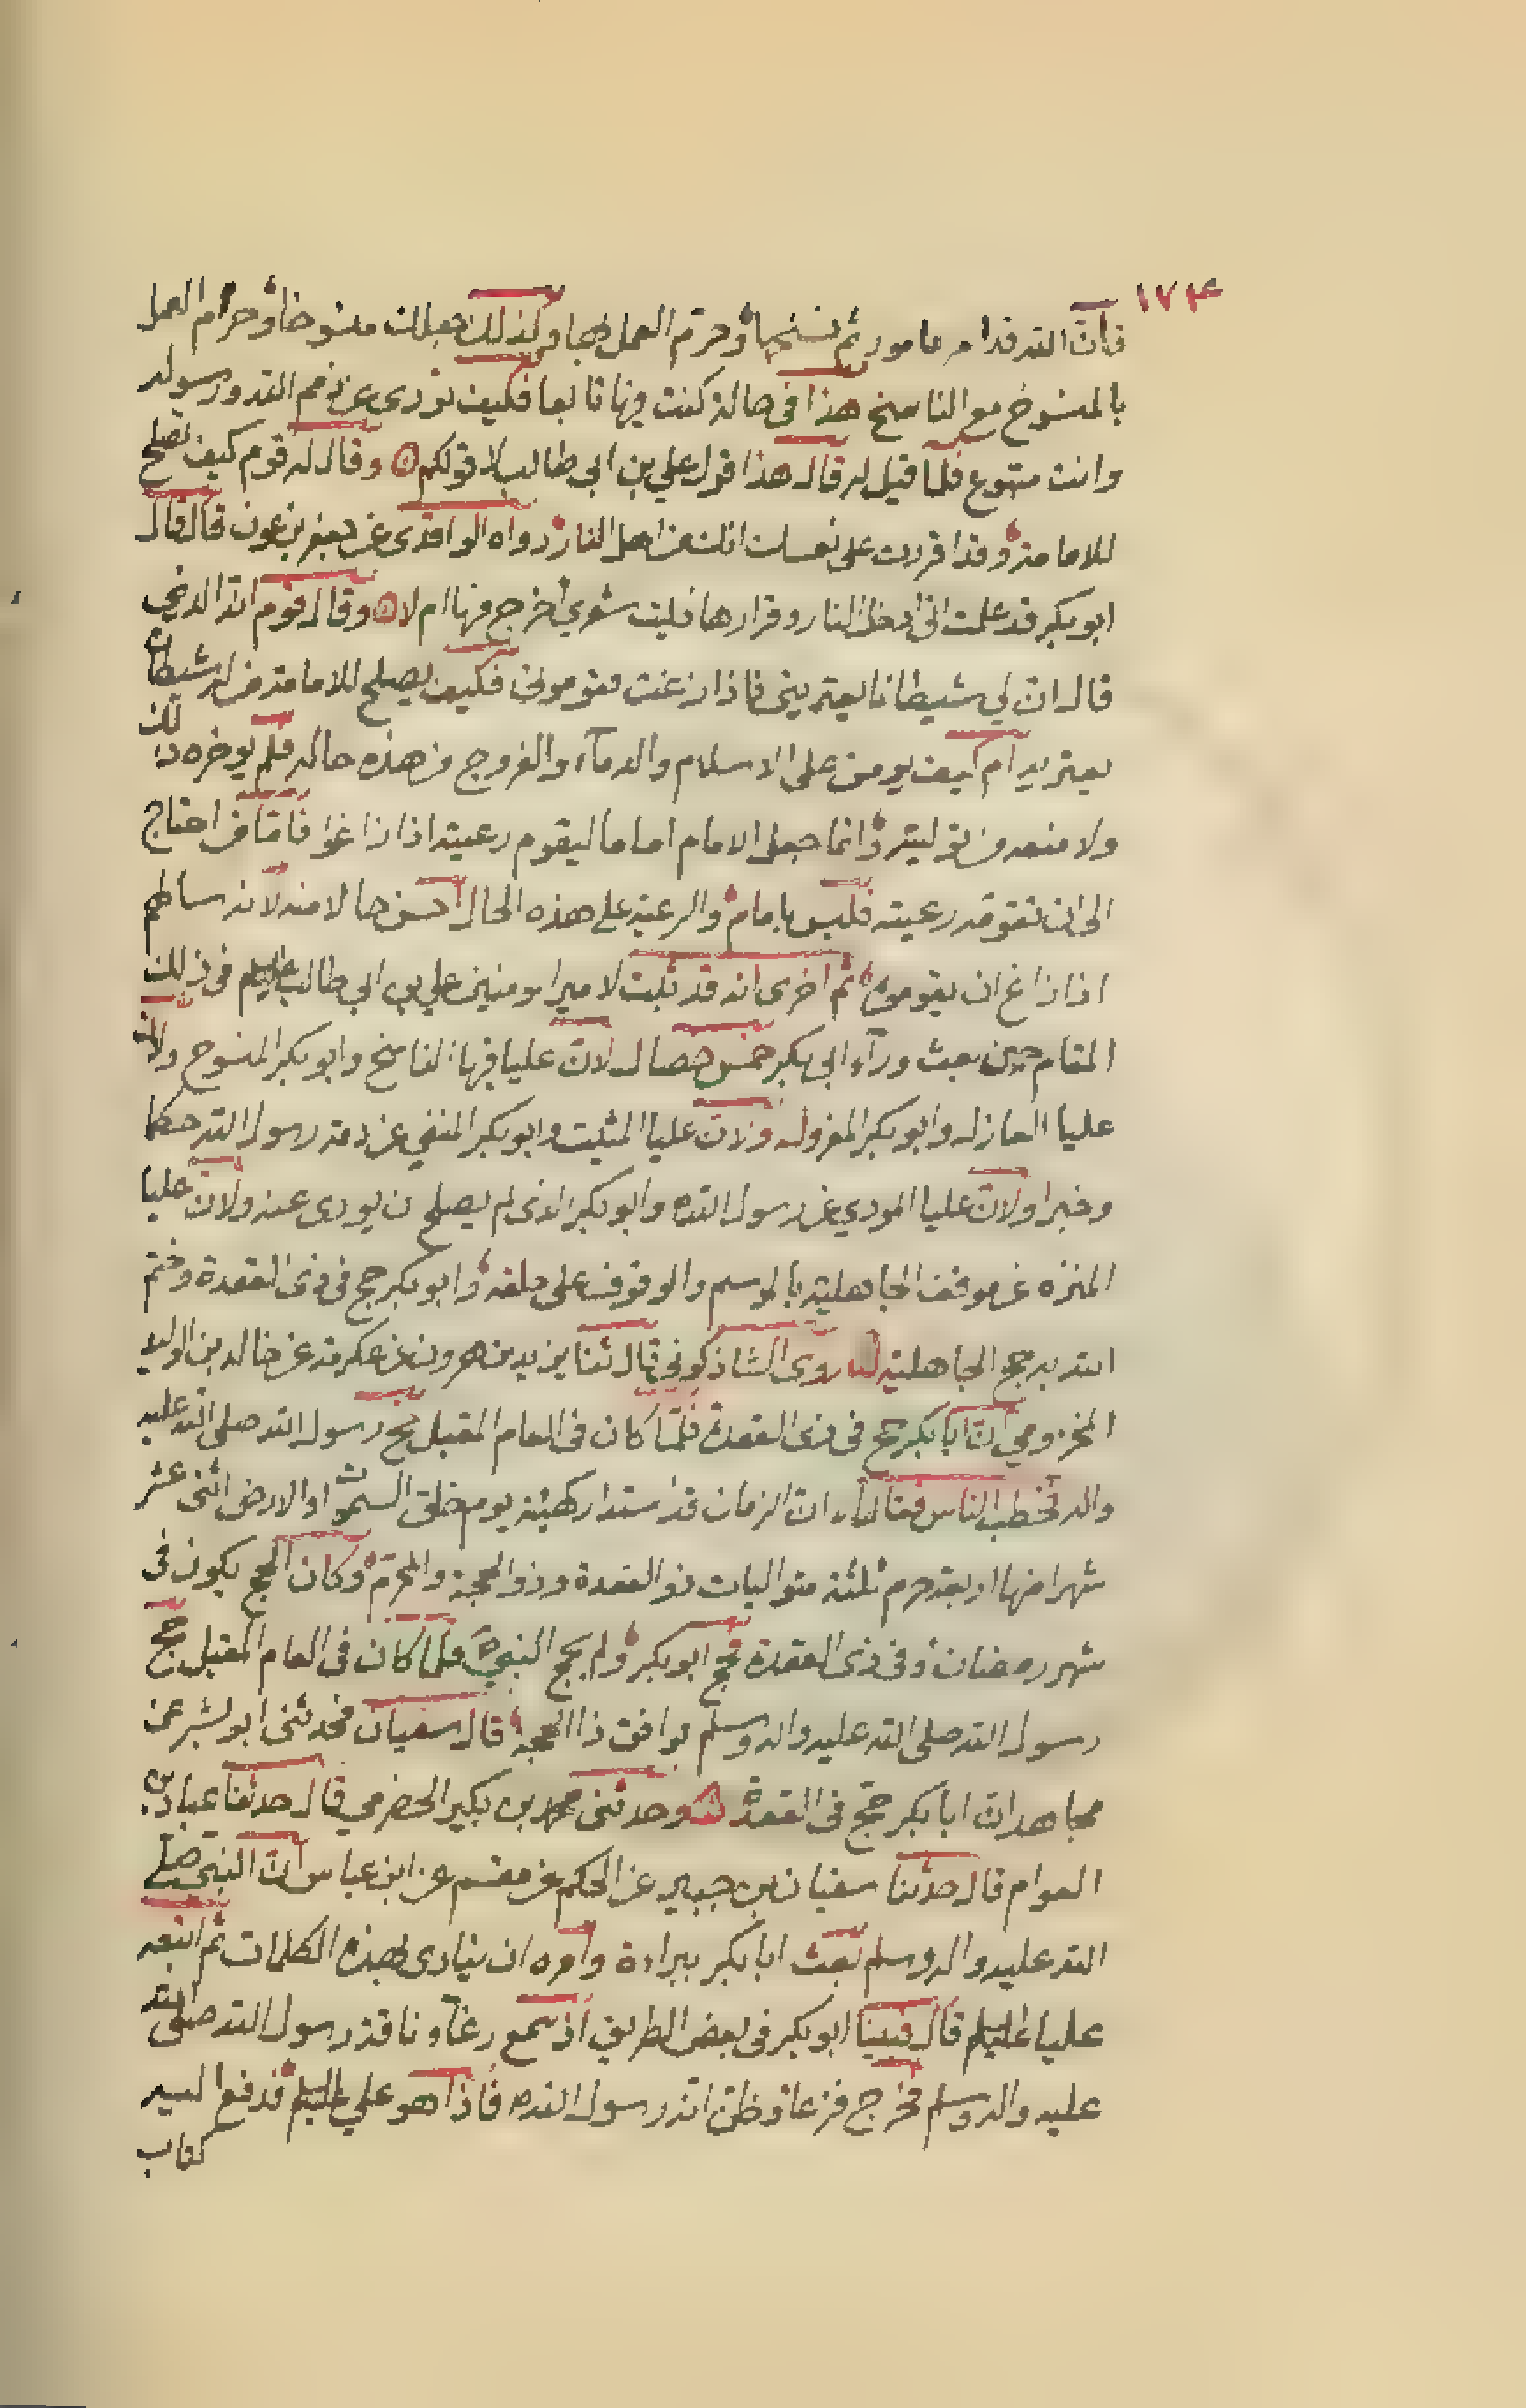 ١٧٤
فان الله قد امر بامور ثم نسخها وحرم العمل بها وكذلك جعلك منسوخا وحرم العمل
بالمنسوخ مع الناسخ هذا في حالة كنت فيها تابعا فكيف تؤدى عن ذمم الله ورسوله
وانت متبوع فلما قيل له قال هذا قول علي بن ابي طالب لا قولكم وقال له قوم كيف تصلح
للامامة وقد اقررت على نفسك انك من اهل النار رواه الواقدى عن جعفر بن عون قال قال
ابو بكر قد علمت انى ادخل النار وقرارها فليت شعري اخرج منها ام لا وقال قوم انه الذي
قال ان لي شيطانا يعتريني فاذا زغت فقوموني فكيف يصلح للامامة من له شيطان
يعتريه ام كيف يومن على الاسلام والدماء والفروج من هذه حاله فلم يوخره ذلك
ولا منعه من توليته وانما جعل الامام اماما ليقوم رعيته اذا زاغوا فاما من احتاج
الى ان تقومه رعيته فليس بامام والرعية على هذه الحال احسن حالا منه لانه سالهم
اذا زاغ ان يقوموه ثم اخرى انه قد ثبت لامير المومنين علي بن ابي طالب عليه السلم في ذلك
المقام حين بعث وراء ابي بكر خمس خصال لان عليا فيها الناسخ وابو بكر المنسوخ ولان
عليا العازل وابو بكر المعزول ولان عليا المثبت وابو بكر المنفي عن ذمة رسول الله حكما
وخبرا ولان عليا المودي عن رسول الله ص وابو بكر الذى لم يصلح ان يودى عنه ولان عليا
المنزه عن موقف الجاهلية بالموسم والوقوف على حلفه وابو بكر حج في ذى القعدة وختم
الله به حج الجاهلية روى الشاذكوني قال ثنا يزيد بن هرون عن عكرمة عن خالد بن الوليد
المخزومي ان ابا بكر حج في ذى القعدة فلما كان في العام المقبل حج رسول الله صلى الله عليه
واله فخطب الناس فقال ان الزمان قد استدار كهيئة يوم خلق السموات والارض اثنى عشر
شهرا منها اربعة حرم ثلثة متواليات ذو القعدة وذو الحجة والمحرم وكان الحج يكون في
شهر رمضان وفي ذى القعدة فحج ابو بكر ولم يحج النبي ص فلما كان في العام المقبل حج
رسول الله صلى الله عليه واله وسلم فوافق ذا الحجة قال سفيان فحدثنى ابو بشر عن
مجاهد ان ابا بكر حج في القعدة وحدثنى محمد بن بكير الحضرمي قال حدثنا عباد بن
العوام قال حدثنا سفيان بن جبير عن الحكم عن مقسم عن ابن عباس ان النبي صلى
الله عليه واله وسلم بعث ابا بكر ببراءة وامره ان ينادى بهذه الكلمات ثم اتبعه
عليا عليه السلم قال فبينا ابو بكر في بعض الطريق اذ سمع رغاء ناقة رسول الله صلى الله
عليه واله وسلم فخرج فزعا وظن انه رسول الله ص فاذا هو علي عليه السلم فدفع اليه
كتاب